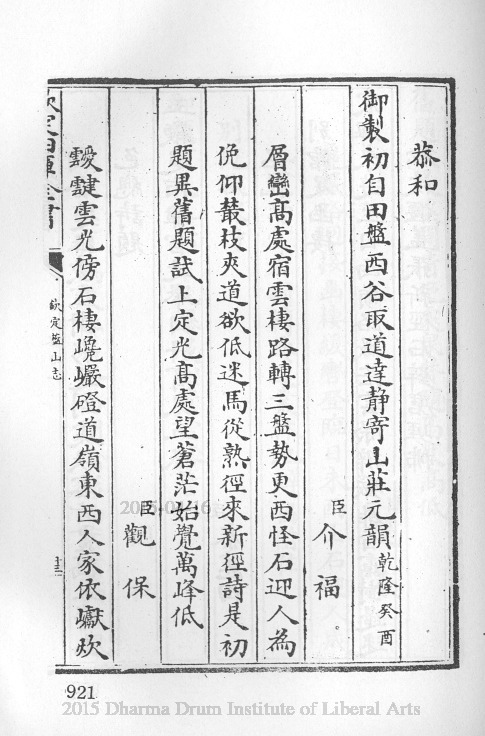 恭和
御製初自田盤西谷取道達静寄山莊元韻乾隆癸酉
臣介福
層巒高處宿雲棲路轉三盤勢更西怪石迎人為
俛仰叢枝夾道欲低迷馬從熟徑來新徑詩是初
題異舊題試上定光高處望蒼茫始覺萬峰低
臣觀保
靉靆雲光傍石棲巉巖磴道嶺東西人家依巘炊
欽定四庫全書
欽定盤山志
十三
921
2015 Dharma Drum Institute of Liberal Arts